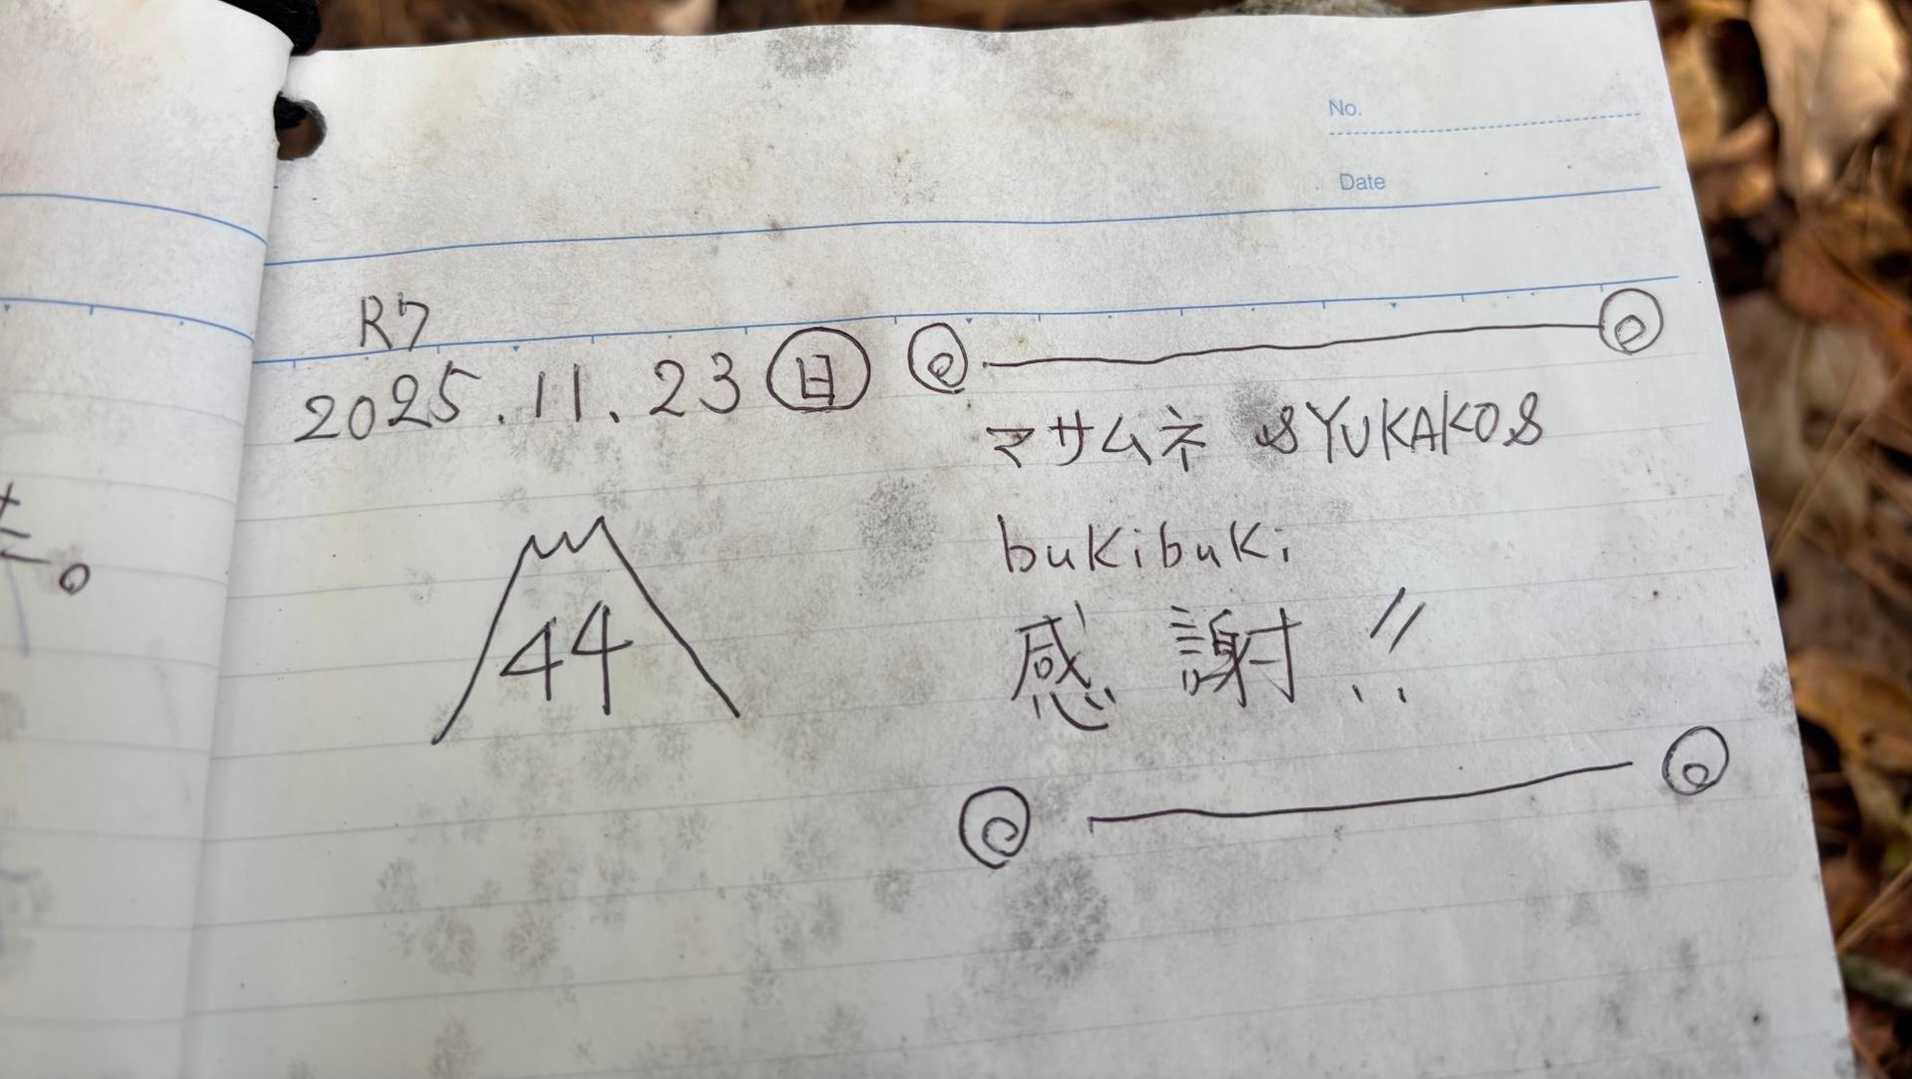 No.
Date
R7
2025.11.23 日
マサムネ SYUKAKOS
bukibuki
感謝!!
44
た。